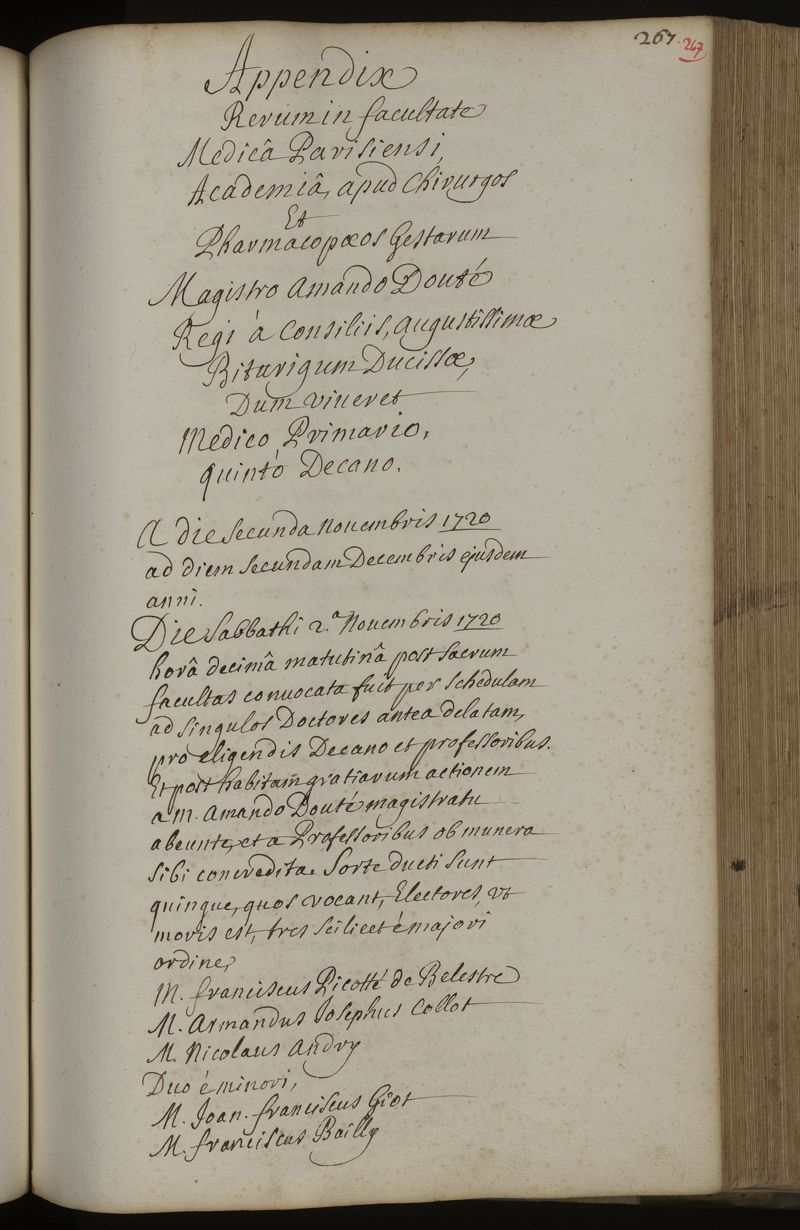 267. 267
Appendix
Rerum in facultate
Medicâ Parisiensi,
Academiâ, apud Chirurgos
Et
Pharmacopœos Gestarum
Magistro Amando Douté
Regi à Consiliis, Augustissimæ
Biturigum Ducissæ,
Dum viveret
Medico Primario,
quintó Decano.
A die Secunda Novembris 1720
ad diem Secundam Decembris ejusdem
anni.
Die Sabbathi 2.ª Novembris 1720
horâ decimâ matutinâ post Sacrum
facultas convocata fuit per Schedulam
ad Singulos Doctores antea delatam,
pro eligendis Decano et professoribus.
Et post habitam gratiarum actionem
a M. Amando Douté magistratu
abeunte, et a Professoribus ob munera
Sibi concredita. Sorte ducti Sunt
quinque, quos vocant, Electores, vt
moris est, tres Scilicet é majori
ordine,
M. franciscus Picotté de Belestre
M. Armandus Josephus Collot
M. Nicolaus Andry
Duo é minori,
M. Joan. franciscus Giot
M. franciscus Bailly